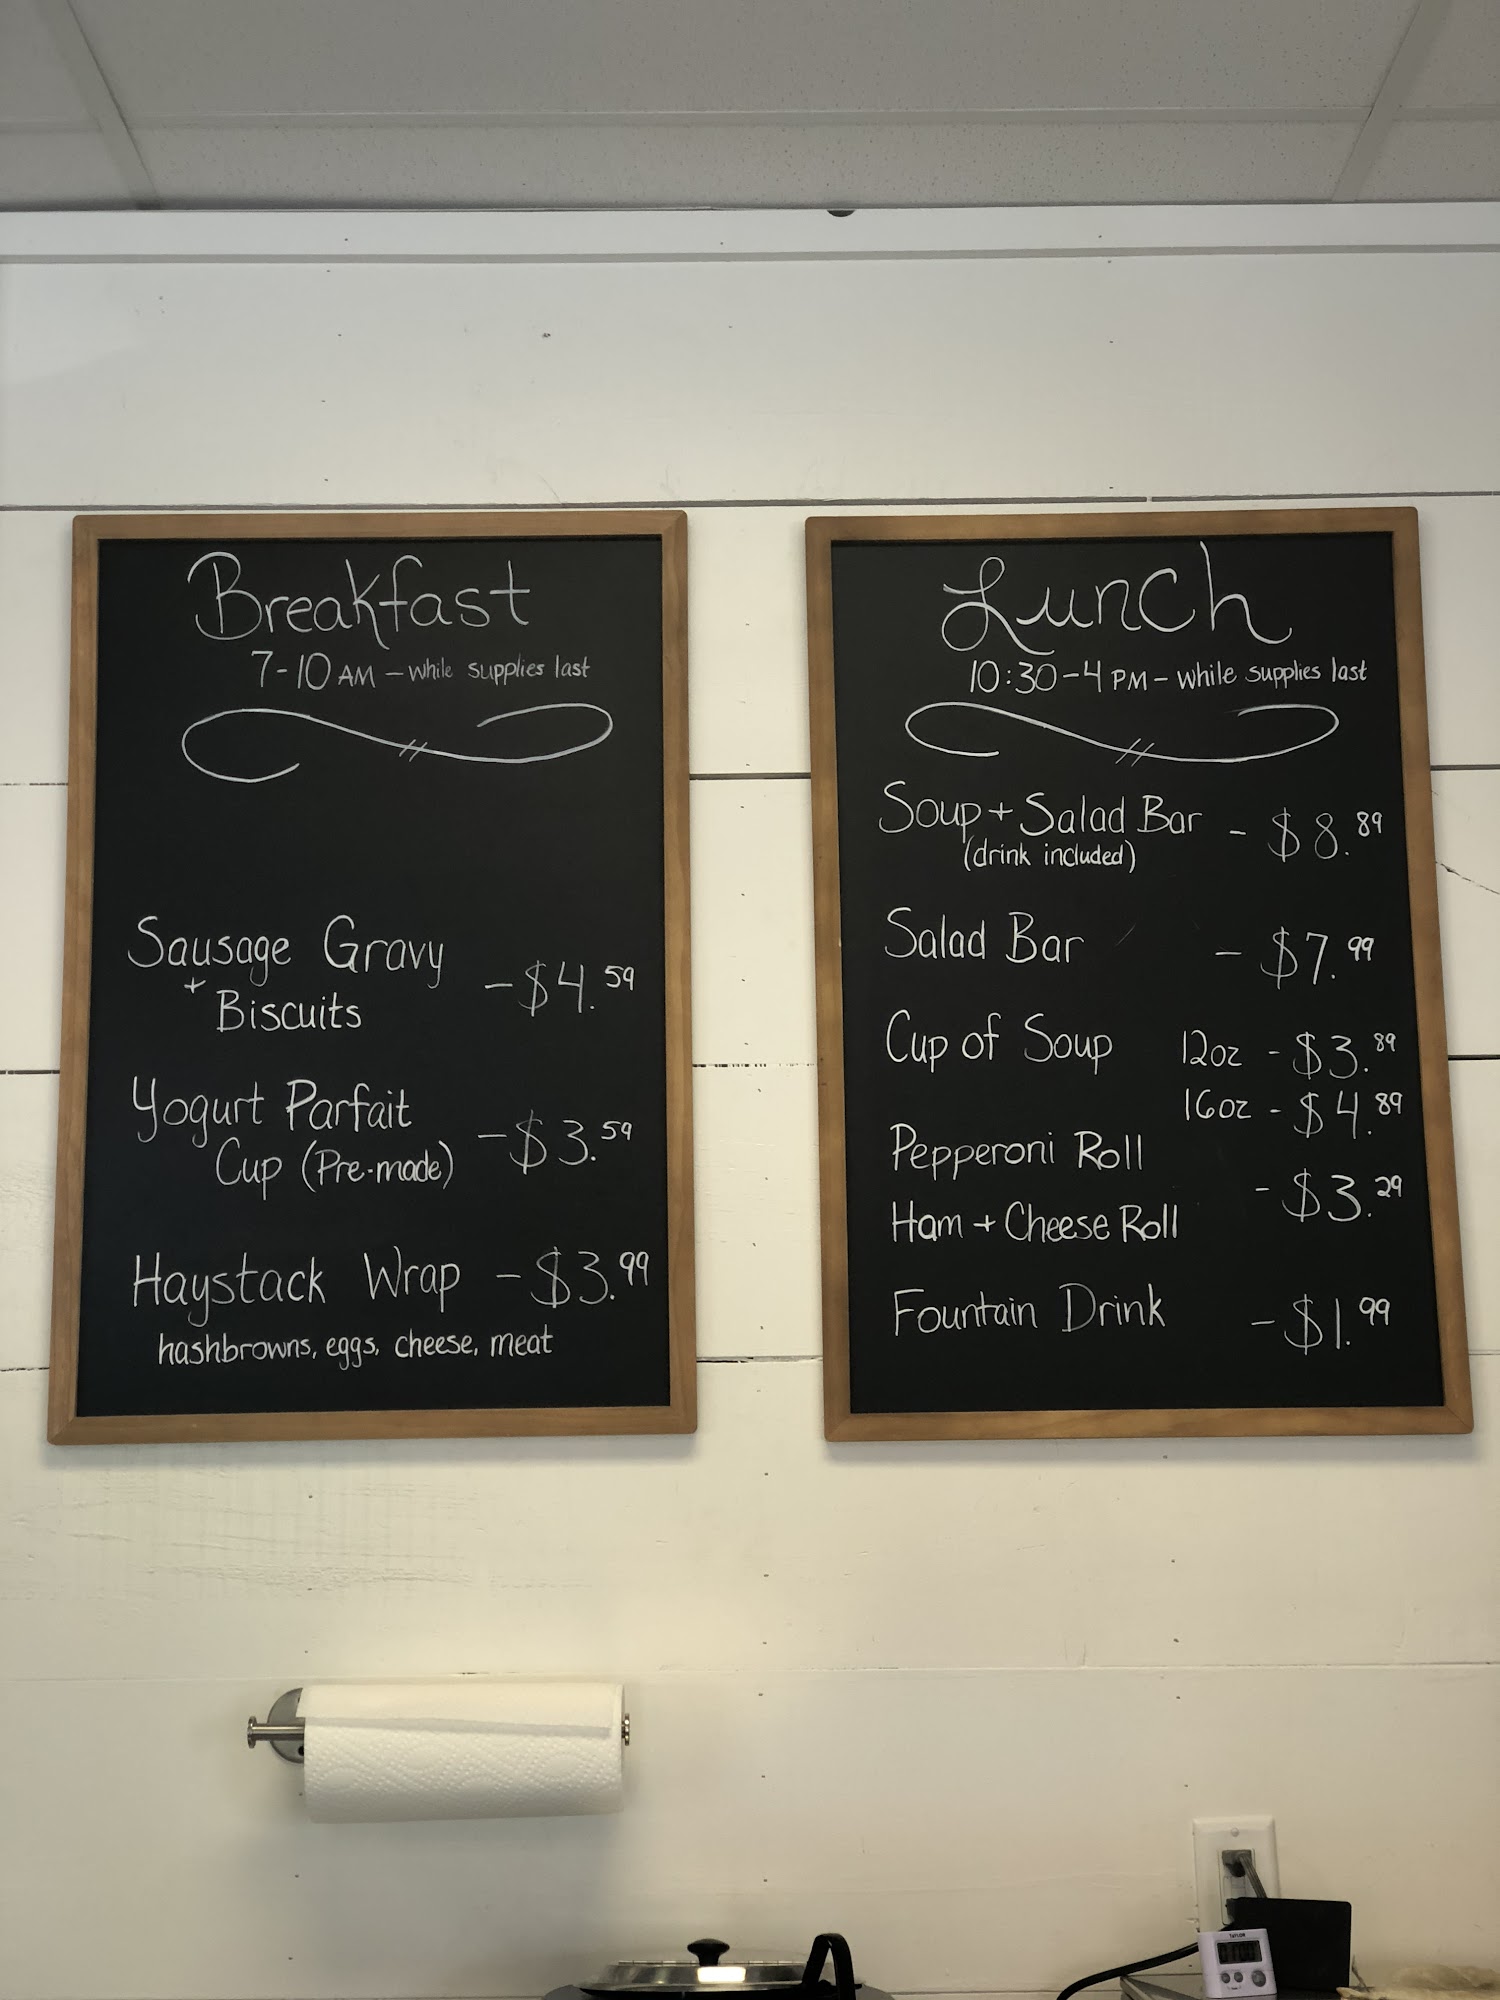 Breakfast
7-10 AM - while supplies last
Sausage Gravy
+
Biscuits
- $4.59
Yogurt Parfait
Cup (Pre-made)
- $3.59
Haystack Wrap - $3.99
hashbrowns, eggs, cheese, meat
Lunch
10:30-4 PM - while supplies last
Soup + Salad Bar - $8.89
(drink included)
Salad Bar - $7.99
Cup of Soup 12oz - $3.89
16oz - $4.89
Pepperoni Roll
- $3.29
Ham + Cheese Roll
Fountain Drink - $1.99
TAYLOR